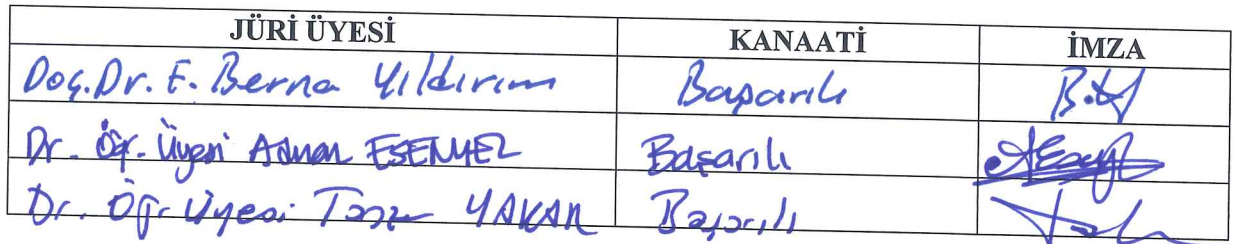 JÜRİ ÜYESİ KANAATİ İMZA
Doç.Dr. E. Berna Yıldırım Başarılı B.Y
Dr. Öğr. Üyesi Adnan ESENYEL Başarılı
Dr. Öğr Üyesi YAKAN Başarılı